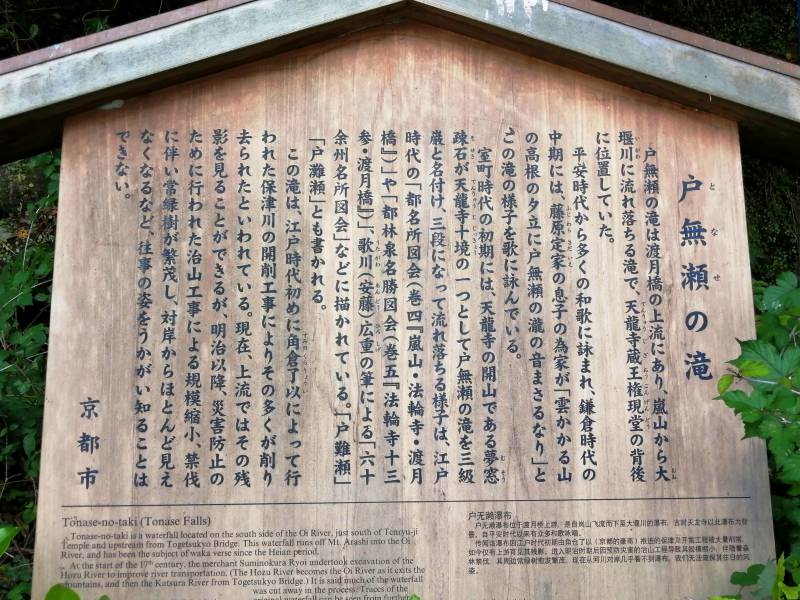 戸無瀬の滝
戸無瀬の滝は渡月橋の上流にあり、嵐山から大
堰川に流れ落ちる滝で、天龍寺蔵王権現堂の背後
に位置していた。
平安時代から多くの和歌に詠まれ、鎌倉時代の
中期には、藤原定家の息子の為家が「雲かかる山
の高根の夕立に戸無瀬の瀧の音まさるなり」と
この滝の様子を歌に詠んでいる。
室町時代の初期には、天龍寺の開山である夢窓
疎石が天龍寺十境の一つとして戸無瀬の滝を三級
巌と名付け、三段になって流れ落ちる様子は、江戸
時代の「都名所図会(巻四『嵐山・法輪寺・渡月
橋』)」や「都林泉名勝図会(巻五『法輪寺十三
参・渡月橋』)」、歌川(安藤)広重の筆による「六十
余州名所図会」などに描かれている。「戸難瀬」
「戸灘瀬」とも書かれる。
この滝は、江戸時代初めに角倉了以によって行
われた保津川の開削工事によりその多くが削り
去られたといわれている。現在、上流ではその残
影を見ることができるが、明治以降、災害防止の
ために行われた治山工事による規模縮小、禁伐
に伴い常緑樹が繁茂し、対岸からはほとんど見え
なくなるなど、往事の姿をうかがい知ることは
できない。
京都市
Tonase-no-taki (Tonase Falls)
Tonase-no-taki is a waterfall located on the south side of the Oi River, just south of Tenryu-ji
Temple and upstream from Togetsukyo Bridge. This waterfall runs off Mt. Arashi into the Oi
River, and has been the subject of waka verse since the Heian period.
At the start of the 17th century, the merchant Suminokura Ryoi undertook excavation of the
Hozu River to improve river transportation. (The Hozu River becomes the Oi River as it exits the
mountains, and then the Katsura River from Togetsukyo Bridge.) It is said much of the waterfall
was cut away in the process. Traces of the
original waterfall can be seen from further
户无濑瀑布
户无濑瀑布位于渡月桥上游，是自岚山飞流而下至大堰川的瀑布。古时天龙寺以此瀑布为背
景，自平安时代以来有众多和歌咏颂。
传闻该瀑布因江户时代初期由角仓了以（京都的豪商）推进的保津川开凿工程被大量削窄，
如今仅有上游可见其残影。进入明治时期后因预防灾害的治山工程导致其规模缩小，伴随着森
林禁伐，其周边常绿树愈发繁茂，现在从河川对岸几乎看不到瀑布，我们无法窥探其往日的风
姿。